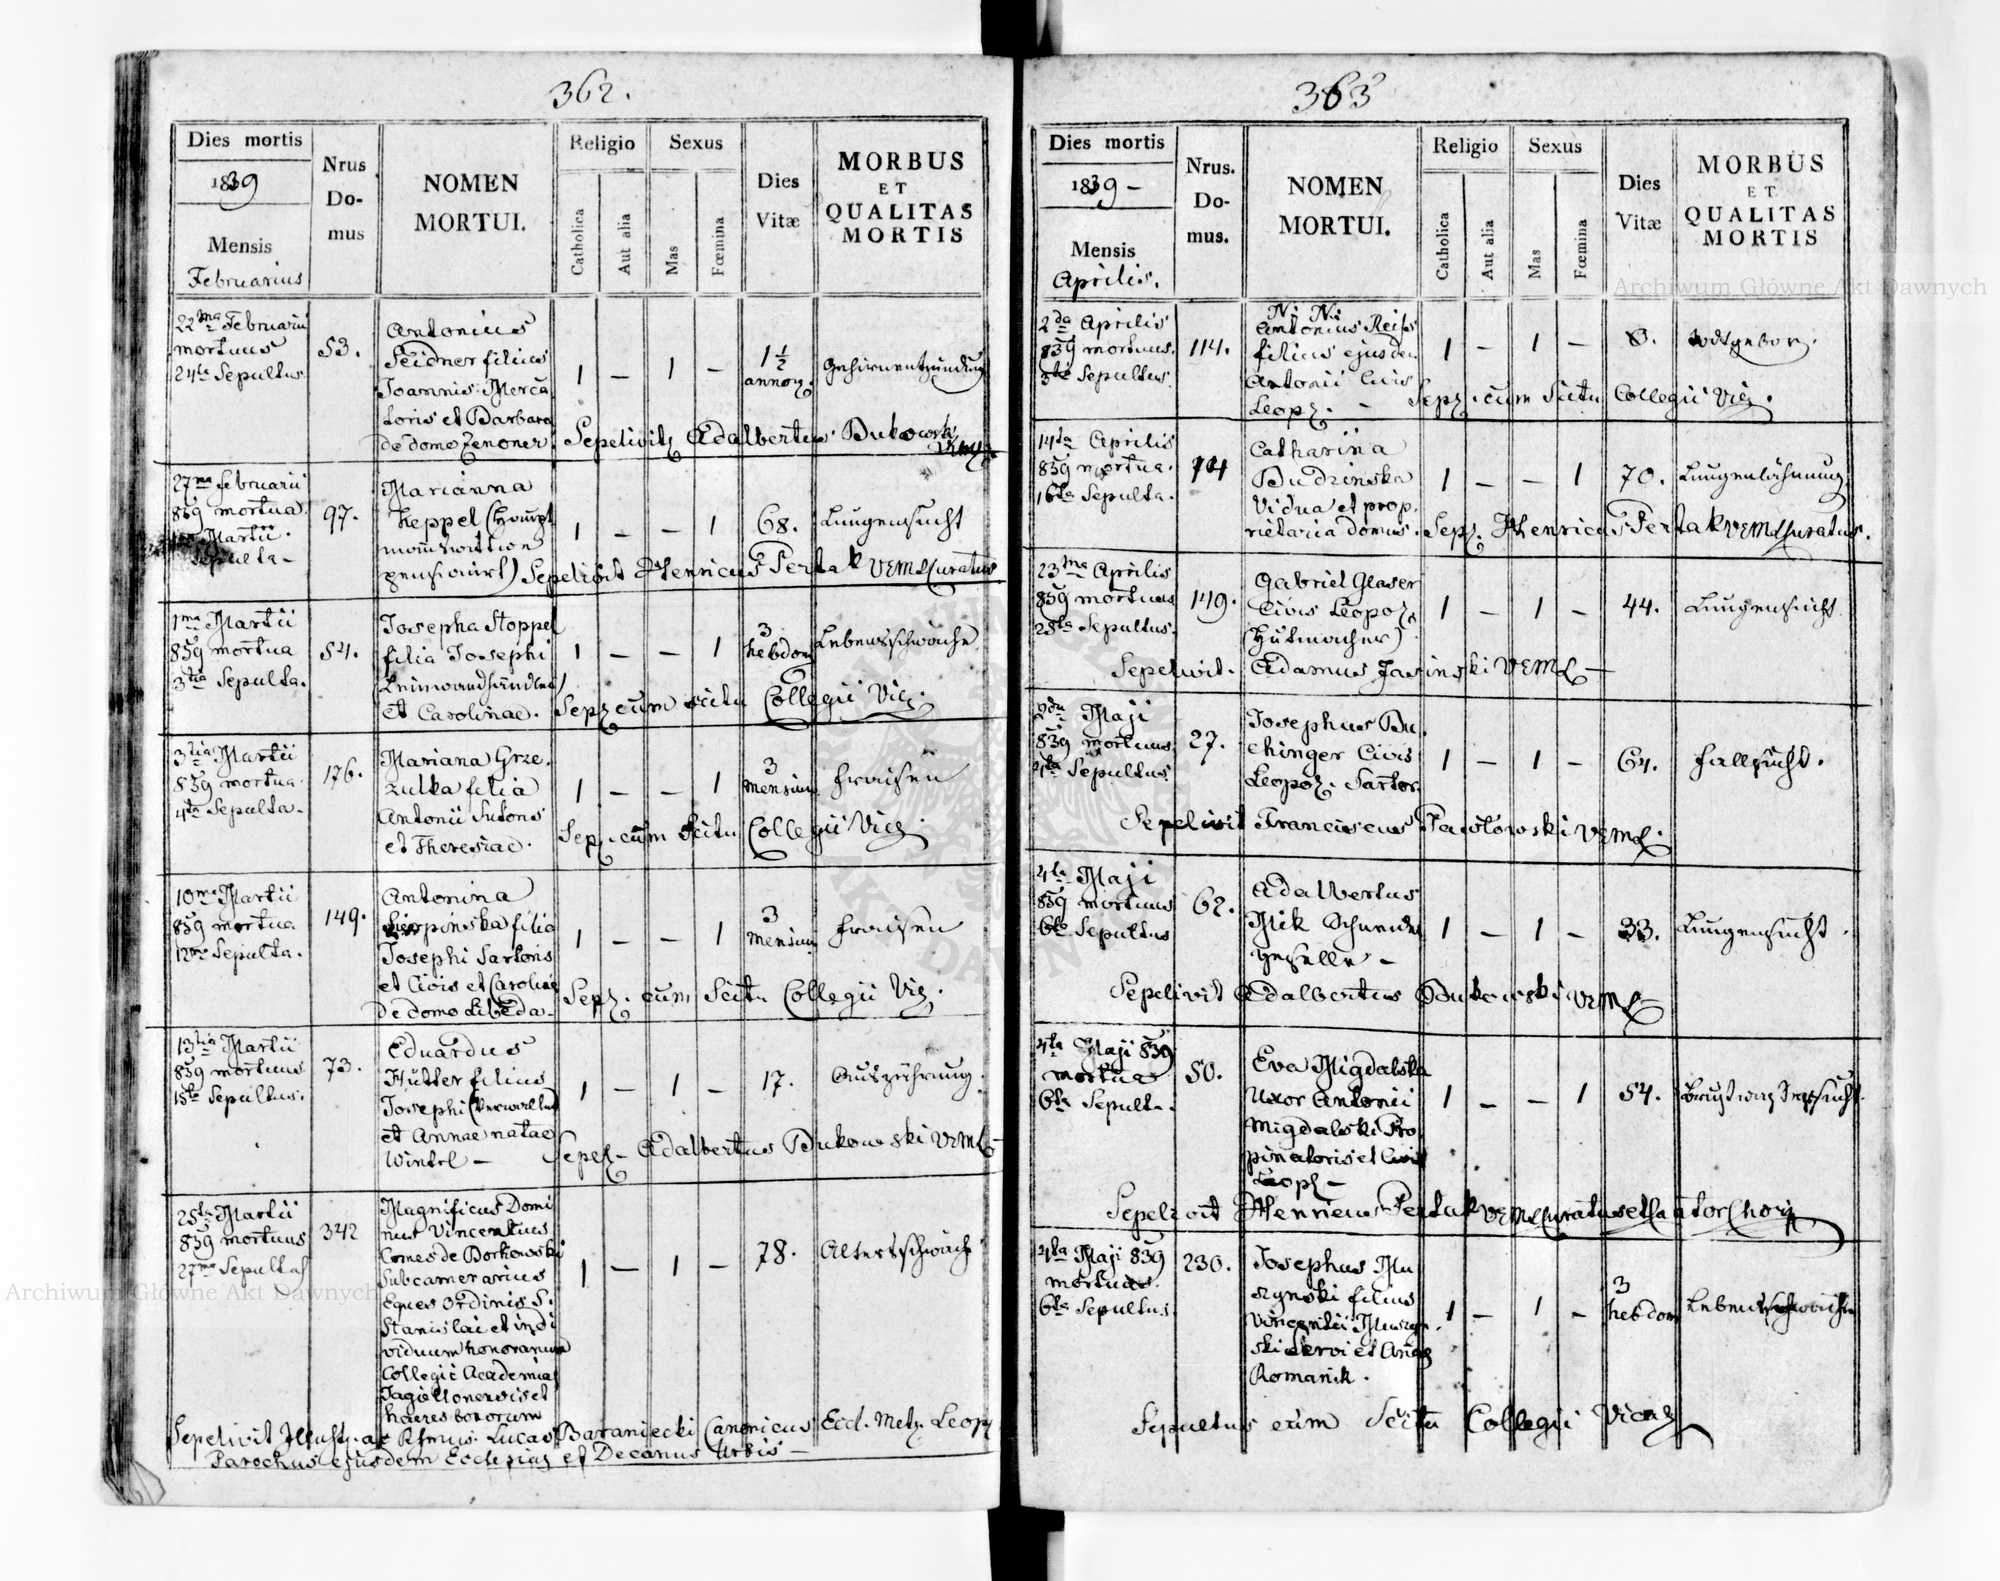 362.
Dies mortis
1839
Mensis
Februarius
Nrus
Do-
mus
NOMEN
MORTUI.
Religio
Catholica
Aut alia
Sexus
Mas
Fœmina
Dies
Vitæ
MORBUS
ET
QUALITAS
MORTIS
22ma Februarii
mortuus
24ta Sepultus
53.
Antonius
Seidner filius
Joannis Merca
toris et Barbara
de domo Zenoner.
1 — 1 —
1 1/2
annor.
Gehirnentzündung
Sepelivit Adalbertus Bukowski
VEML
27ma februarii
839 mortua
Martii
Sepulta —
97.
Marianna
Keppel (Haupt
manns wittwe
pensionirt)
1 — — 1
68.
Lungensucht
Sepelivit Henricus Pertak VEML Curatus
1ma Martii
839 mortua
3tia Sepulta.
54.
Josepha Stoppel
filia Josephi
Leinwandhändler
et Carolinae.
1 — — 1
3
hebdom
Lebensschwäche
Sep. cum scitu Collegii Vic.
3tia Martii
839 mortua
4ta Sepulta —
176.
Mariana Grze.
zulka filia
Antonii Sutoris
et Theresiae.
1 — — 1
3
mensium
fraisen
Sep. cum scitu Collegii Vic.
10ma Martii
839 mortua
12ma Sepulta.
149.
Antonina
Sierpinska filia
Josephi Sartoris
et Civis et Carolinae
De domo Libeda —
1 — — 1
3
mensium
fraisen
Sep. cum Scitu Collegii Vic.
13tia Martii
839 mortuus
15ta Sepultus.
73.
Eduardus
Hütter filius
Josephi (Verwalter
et Annae natae
Winkel —
1 — 1 —
17.
Auszehrung.
Sepel — Adalbertus Bukowski VEML
25ta Martii
839 mortuus
27ma Sepultus
342
Magnificus Domi
nus Vincentius
Comes de Borkowski
Subcamerarius
Eques Ordinis S.
Stanislai et indi
viduum honorarium
Collegii Academiae
Jagiellonensis et
haeres bonorum
1 — 1 —
78.
Altersschwäche
Sepelivit Illust. ac Rsmus. Lucas Baraniecki Canonicus Eccl. Metr. Leop.
Parochus ejusdem Ecclesiae et Decanus Urbis —
363
Dies mortis
1839 —
Mensis
Aprilis.
Nrus.
Do-
mus.
NOMEN
MORTUI.
Religio
Catholica
Aut alia
Sexus
Mas
Fœmina
Dies
Vitæ
MORBUS
ET
QUALITAS
MORTIS
2da Aprilis
839 mortuus.
3tia Sepultus.
114.
N: N:
Antonius Reiss
filius ejusdem
Antonii Civis
Leop. —
1 — 1 —
0.
todtgebor.
Sep. cum Scitu Collegii Vic.
14ta Aprilis
839 mortua.
16ta Sepulta.
Catharina
Budzinska
Vidua et prop.
rietaria domus.
1 — — 1
70.
Lungenlähmung
Sep. Henricus Pertak VEML Curatus.
23ma Aprilis
839 mortuus
25ta Sepultus.
149.
Gabriel Glaser
Civis Leopol.
(Hutmacher)
1 — 1 —
44.
Lungensucht
Sepelivit. Adamus Jasinski VEML —
2da Maji
839 mortuus.
4ta Sepultus.
27.
Josephus Bu.
chinger Civis
Leopol. Sartor.
1 — 1 —
64.
fallsucht.
Sepelivit Franciscus Pawlowski VEML.
4ta Maji
839 mortuus
6ta Sepultus
62.
Adalbertus
Mik Schneider
geselle —
1 — 1 —
33.
Lungensucht.
Sepelivit Adalbertus Bukowski VEML
4ta Maji 839
mortua
6ta Sepulta.
50.
Eva Migdalska
Uxor Antonii
Migdalski Pro
pinatoris et Civis
Leopol —
1 — — 1
54.
Brustwassersucht.
Sepelivit Henricus Pertak VEML Curatus et Cantor Chori
4ta Maji 839
mortuus.
6ta Sepultus.
230.
Josephus Mu
szynski filius
Vincentii Muszyn.
ski servi et Annae
Romanik.
1 — 1 —
3
hebdom
Lebensschwäche
Sepultus cum Scitu Collegii Vical
Archiwum Główne Akt Dawnych
Archiwum Główne Akt Dawnych